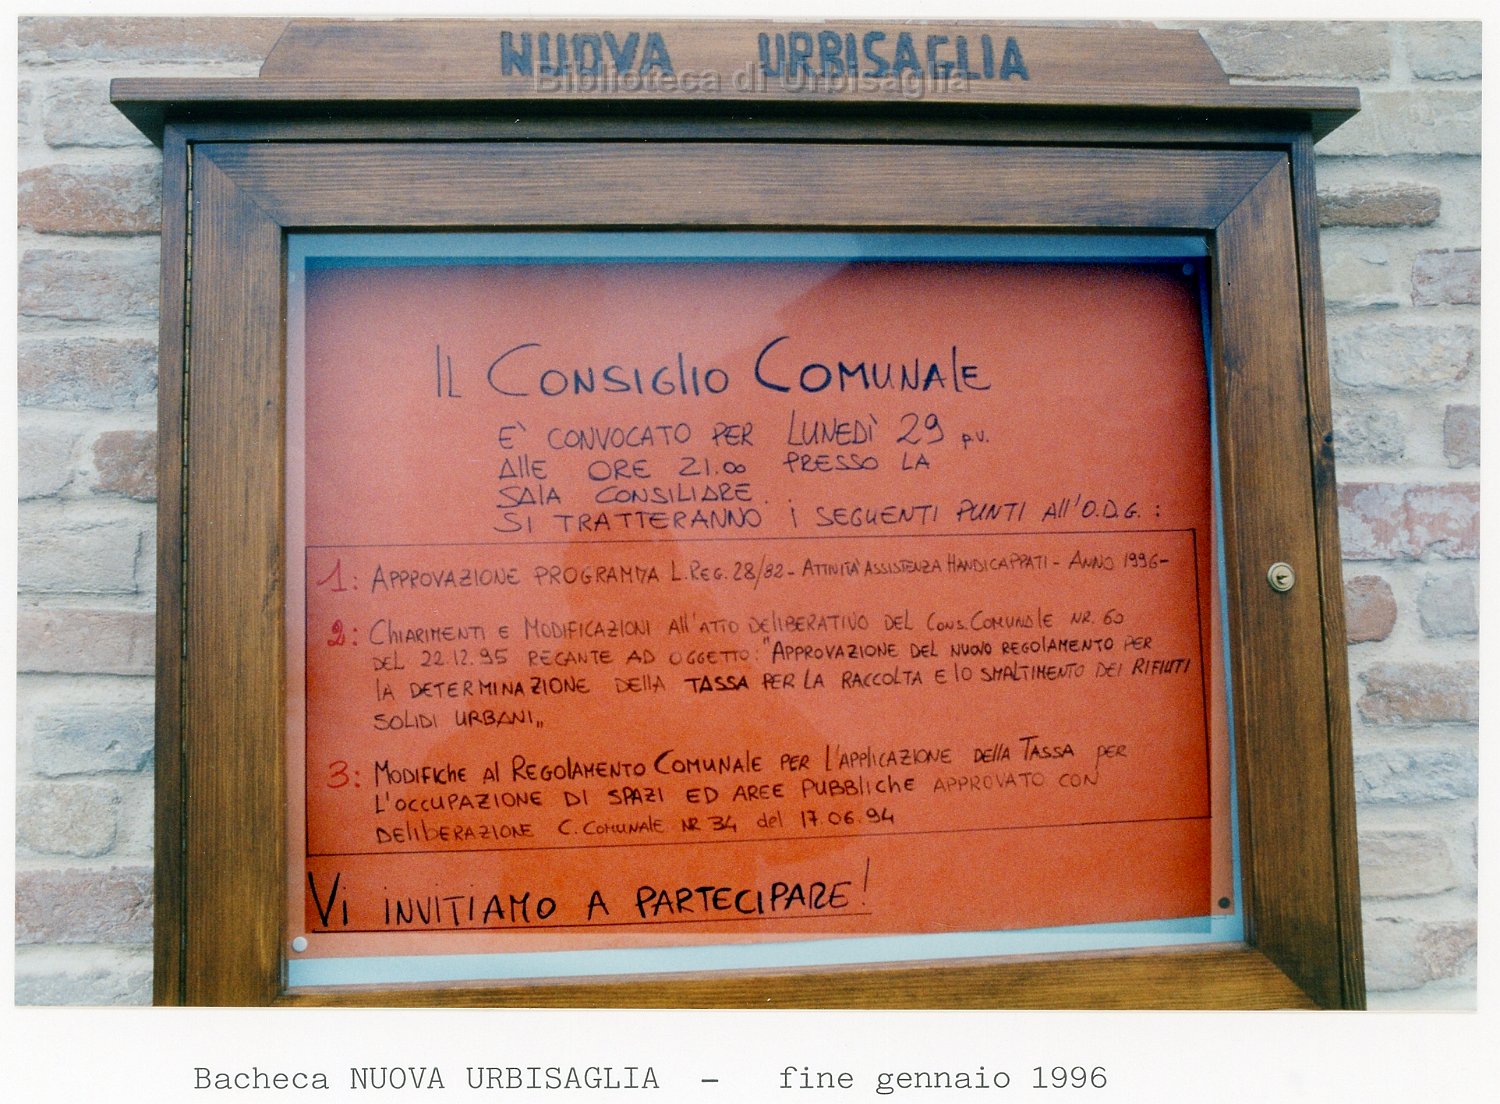 NUOVA URBISAGLIA
Biblioteca di Urbisaglia
IL CONSIGLIO COMUNALE
E' CONVOCATO PER LUNEDÌ 29 p.v.
ALLE ORE 21.00 PRESSO LA
SALA CONSILIARE.
SI TRATTERANNO i SEGUENTI PUNTI All'O.D.G. :
1: APPROVAZIONE PROGRAMMA L.REG. 28/82 - ATTIVITÀ ASSISTENZA HANDICAPPATI - ANNO 1996 -
2: CHIARIMENTI E MODIFICAZIONI All'ATTO DELIBERATIVO DEL CONS. COMUNALE NR. 60
DEL 22.12.95 RECANTE AD OGGETTO: "APPROVAZIONE DEL NUOVO REGOLAMENTO PER
LA DETERMINAZIONE DELLA TASSA PER LA RACCOLTA E LO SMALTIMENTO DEI RIFIUTI
SOLIDI URBANI„
3: MODIFICHE AL REGOLAMENTO COMUNALE PER L'APPLICAZIONE DELLA TASSA PER
L'OCCUPAZIONE DI SPAZI ED AREE PUBBLICHE APPROVATO CON
DELIBERAZIONE C. COMUNALE NR 34 del 17.06.94
Vi INVITIAMO A PARTECIPARE!
Bacheca NUOVA URBISAGLIA – fine gennaio 1996